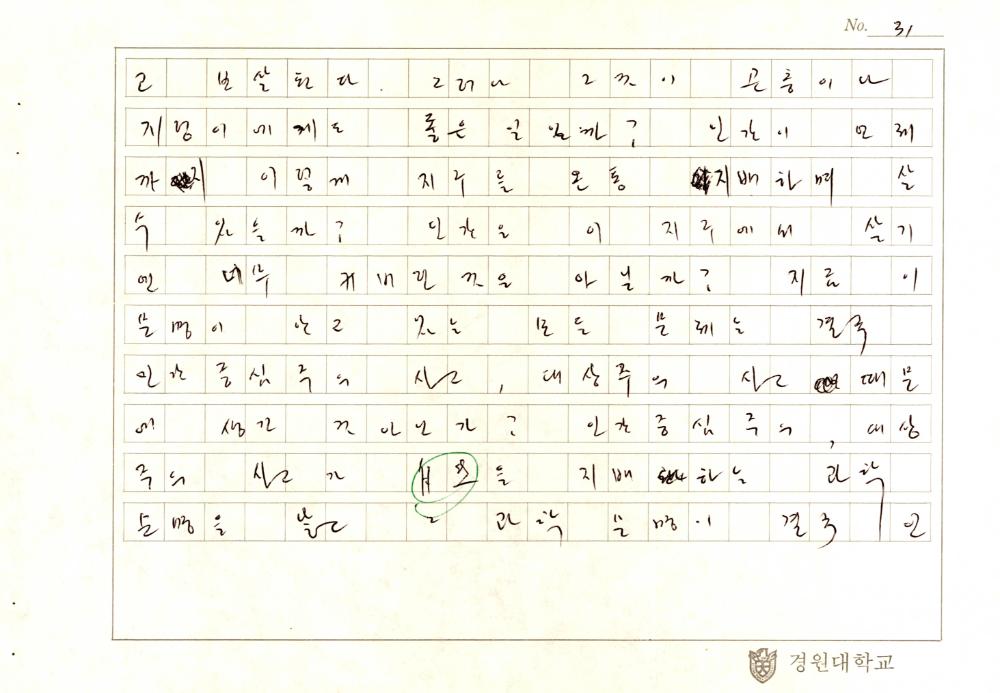 No. 31
고 보살핀다. 그러나 그것이 곤충이나
지렁이에게도 좋은 일일까? 인간이 언제
까지 이렇게 지구를 온통 지배하며 살
수 있을까? 인간은 이 지구에서 살기
엔 너무 커버린 것은 아닐까? 지금 이
문명이 안고 있는 모든 문제는 결국
인간중심주의 사고, 대상주의 사고 때문
에 생긴 것 아닌가? 인간중심주의, 대상
주의 사고가 서로를 지배하는 과학
문명을 낳고 그 과학 문명이 결국 인
경원대학교